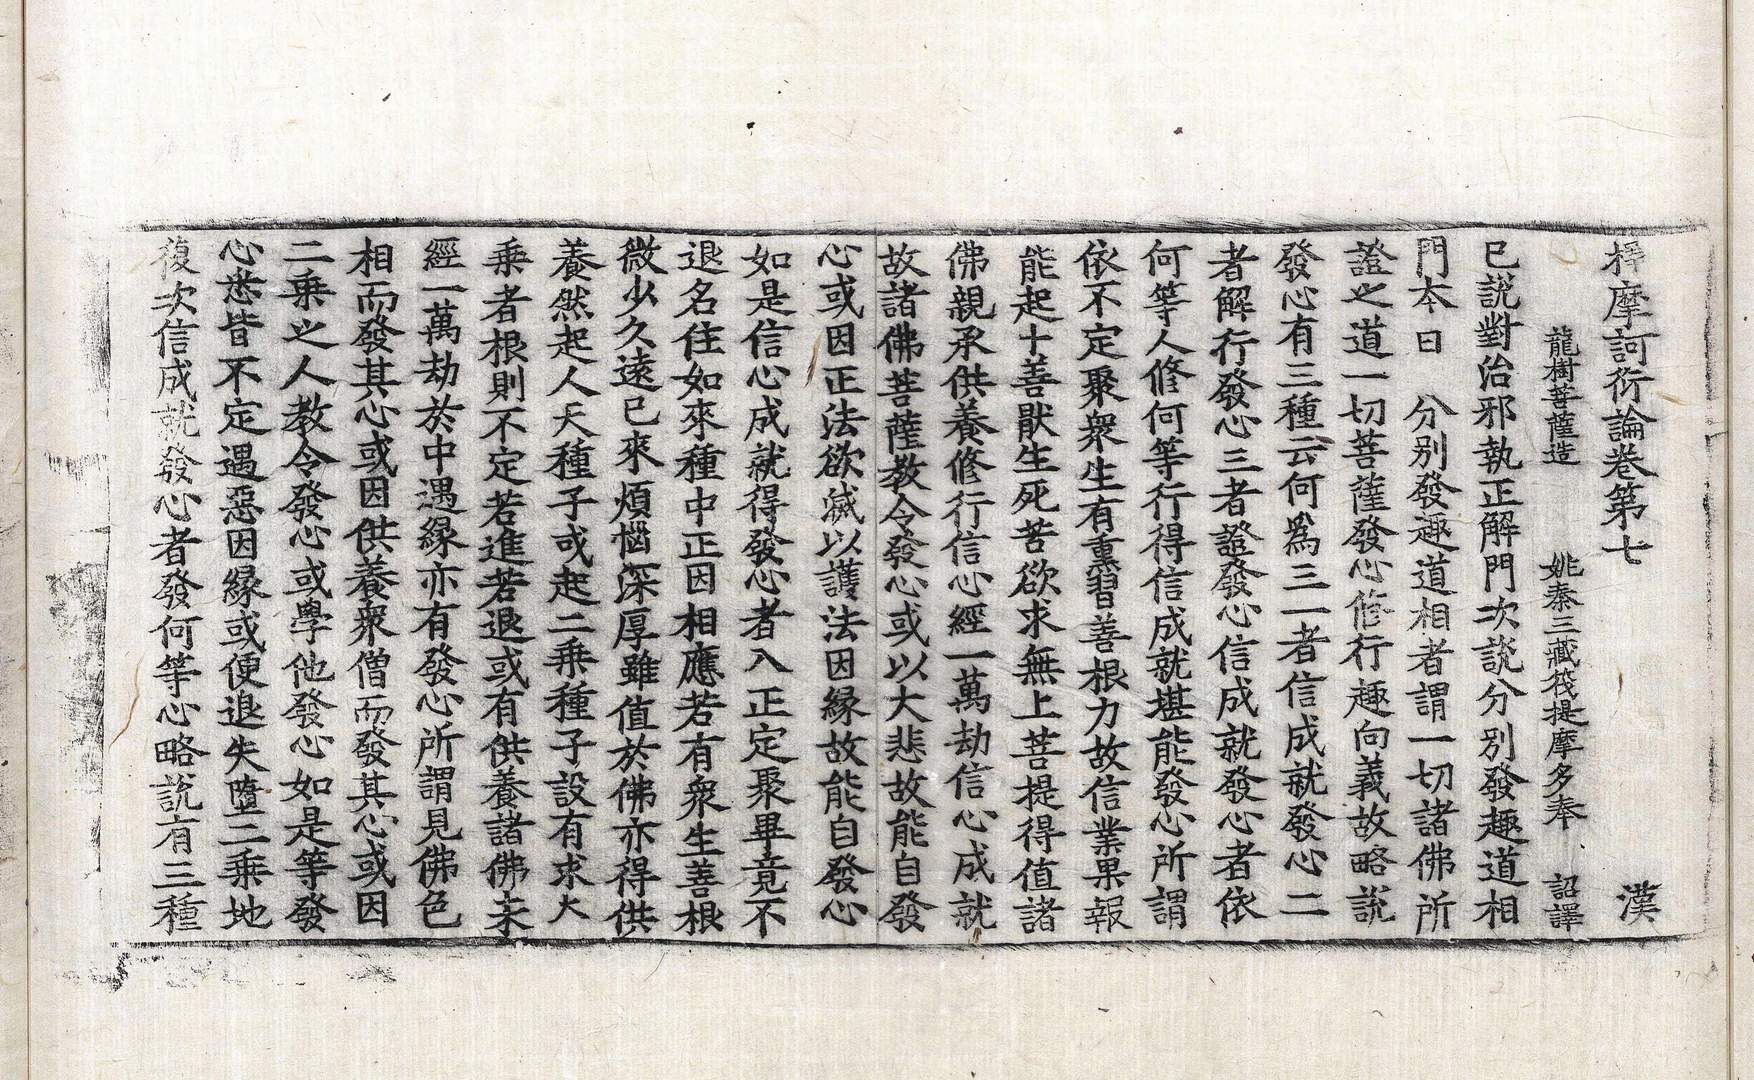 釋摩訶衍論卷第七 漢
龍樹菩薩造 姚秦三藏筏提摩多奉 詔譯
已說對治邪執正解門次說分別發趣道相
門本曰 分別發趣道相者謂一切諸佛所
證之道一切菩薩發心修行趣向義故略說
發心有三種云何爲三一者信成就發心二
者解行發心三者證發心信成就發心者依
何等人修何等行得信成就堪能發心所謂
依不定聚衆生有熏習善根力故信業果報
能起十善厭生死苦欲求無上菩提得值諸
佛親承供養修行信心經一萬劫信心成就
故諸佛菩薩教令發心或以大悲故能自發
心或因正法欲滅以護法因緣故能自發心
如是信心成就得發心者入正定聚畢竟不
退名住如來種中正因相應若有衆生善根
微少久遠已來煩惱深厚雖值於佛亦得供
養然起人天種子或起二乘種子設有求大
乘者根則不定若進若退或有供養諸佛未
經一萬劫於中遇緣亦有發心所謂見佛色
相而發其心或因供養衆僧而發其心或因
二乘之人教令發心或學他發心如是等發
心悉皆不定遇惡因緣或便退失墮二乘地
復次信成就發心者發何等心略說有三種